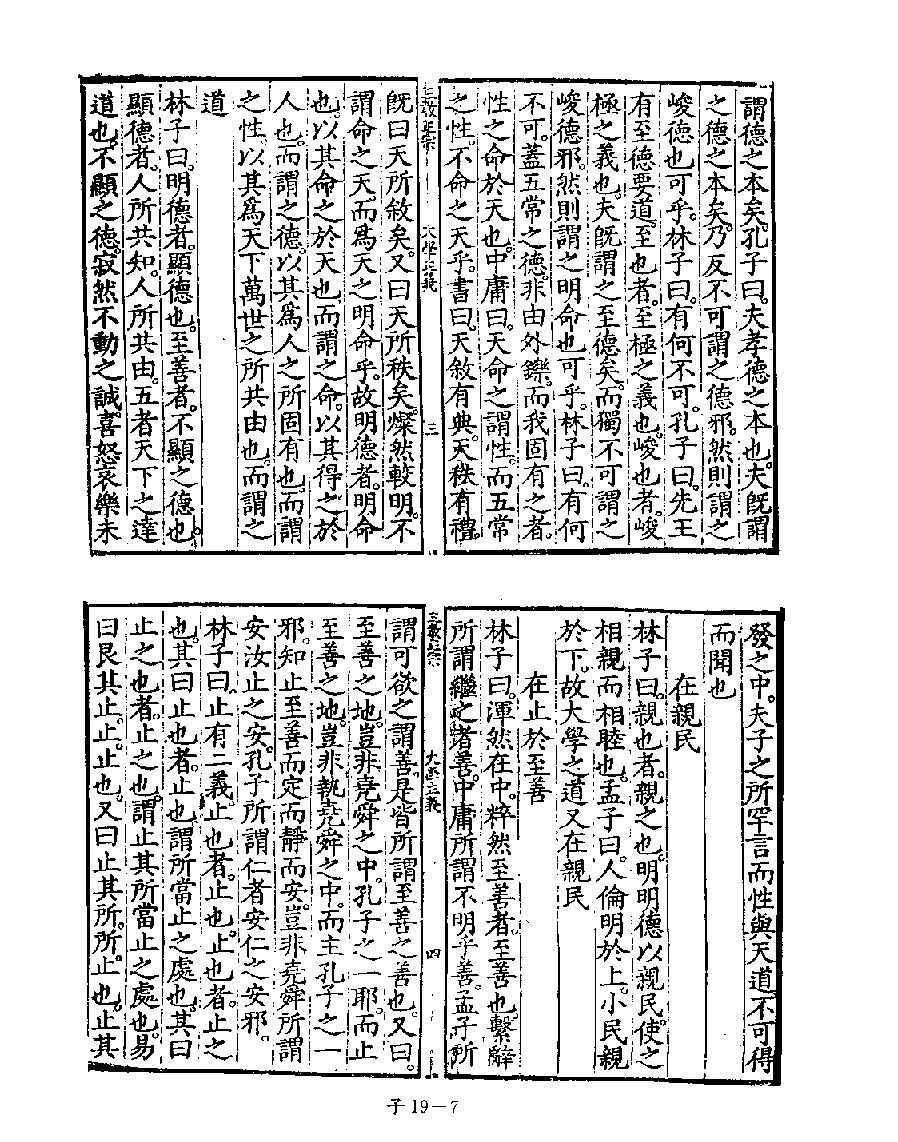 謂德之本矣。孔子曰。夫孝德之本也。夫既謂
之德之本矣。乃反不可謂之德邪。然則謂之
峻德也可乎。林子曰。有何不可。孔子曰。先王
有至德要道。至也者。至極之義也。峻也者。峻
極之義也。夫既謂之至德矣。而獨不可謂之
峻德邪。然則謂之明命也可乎。林子曰。有何
不可。蓋五常之德。非由外鑠。而我固有之者。
性之命於天也。中庸曰。天命之謂性。而五常
之性。不命之天乎。書曰。天敘有典。天秩有禮。
三教正宗
大學正義
三
既曰天所敘矣。又曰天所秩矣。燦然較明。不
謂命之天。而爲天之明命乎。故明德者。明命
也。以其命之於天也而謂之命。以其得之於
人也。而謂之德。以其爲人之所固有也。而謂
之性。以其爲天下萬世之所共由也。而謂之
道
林子曰。明德者。顯德也。至善者。不顯之德也。
顯德者。人所共知。人所共由。五者天下之達
道也。不顯之德。寂然不動之誠。喜怒哀樂未
發之中。夫子之所罕言而性與天道不可得
而聞也
在親民
林子曰。親也者。親之也。明明德以親民。使之
相親而相睦也。孟子曰。人倫明於上。小民親
於下。故大學之道又在親民
在止於至善
林子曰。渾然在中。粹然至善者。至善也。繫辭
所謂繼之者善。中庸所謂不明乎善。孟子所
大學正義
四
謂可欲之謂善。是皆所謂至善之善也。又曰。
至善之地。豈非堯舜之中。孔子之一耶。而止
至善之地。豈非執堯舜之中。而主孔子之一
邪。知止至善而定而靜而安。豈非堯舜所謂
安汝止之安。孔子所謂仁者安仁之安邪。
林子曰。止有二義。止也者。止也。止也者。止之
也。其曰止也者。止也。謂所當止之處也。其曰
止之也者。止之也。謂止其所當止之處也。易
曰艮其止。止。止也。又曰止其所。所。止也。止其
子19－7